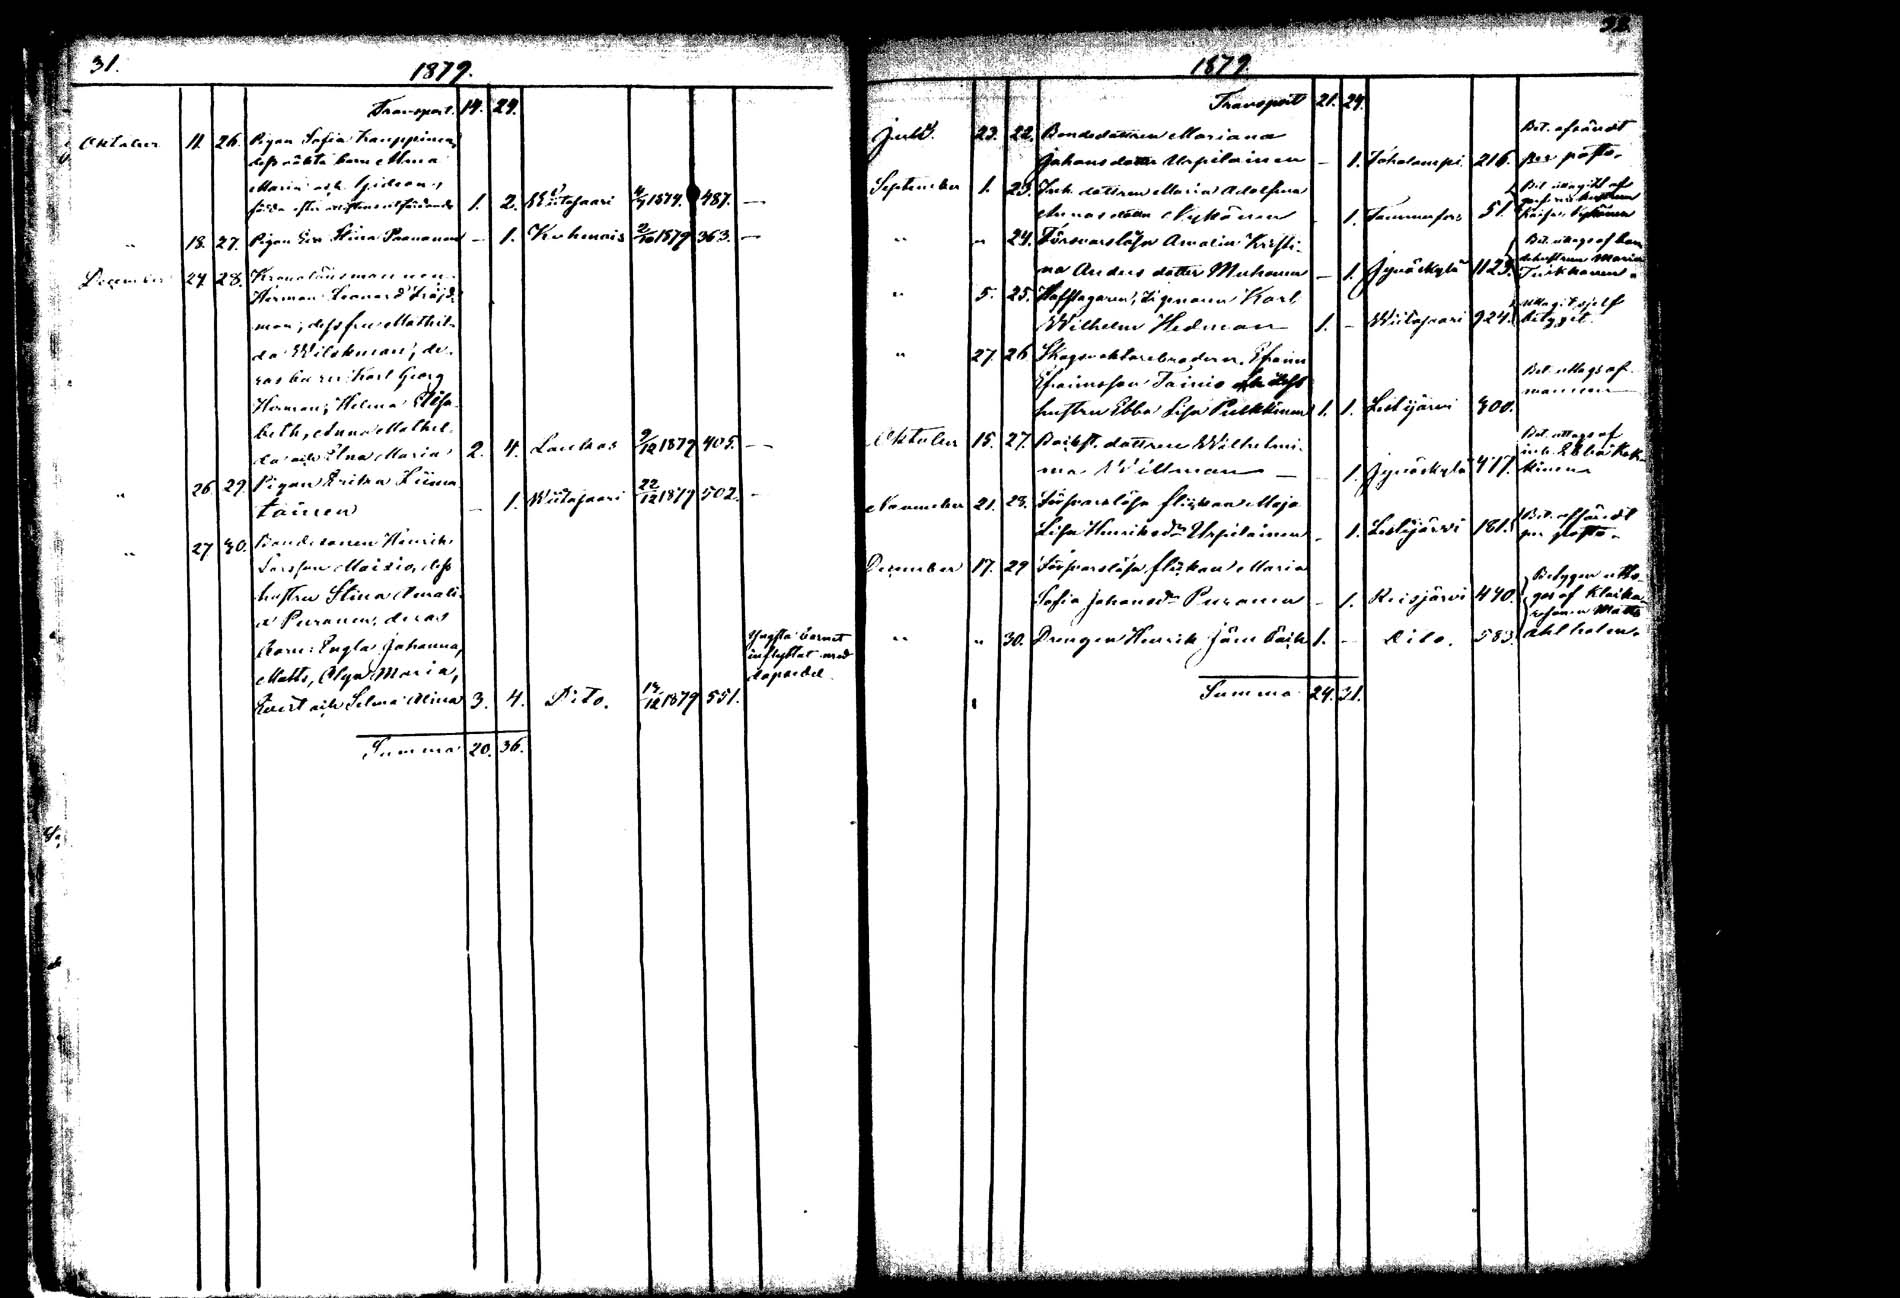 31.
1879.
Transport. 14. 24.
Oktober 11. 26. Pigan Sofia Kauppinen,
dess oäkta barn Alma
Maria och Gideon,
födda efter attestens utfärdande 1. 2. Wiitasaari 4/9 1879. 487. —
" 18. 27. Pigan Eva Stina Paananen — 1. Kuhmois 2/10 1879 363. —
December 24. 28. Kronolänsmannen
Herman Leonard Fröjd-
man, dess fru Mathil-
da Wilskman, de-
ras barn: Karl Georg
Herman, Helma Elisa-
beth, Anna Mathil-
da och Elna Maria 2. 4. Laukas 9/12 1879 405. —
" 26. 29. Pigan Erika Liima-
tainen — 1. Wiitasaari 22/12 1879 502. —
" 27 30. Bondesonen Henrik
Larsson Moisio, dess
hustru Stina Amali-
a Puranen, deras
barn: Engla Johanna,
Matts, Olga Maria,
Evert och Selma Alina 3. 4. Dito. 12/1879 551.
Yngsta barnet
inflyttat med
dopsedel.
Summa 20. 36.
1879.
Transport 21. 24.
Juli 23. 22. Bondedottren Mariana
Johansdotter Urpilainen — 1. Toholampi. 216.
Bet. afsändt
per posto.
September 1. 23. Inh. dottren Maria Adolfina
Annasdotter Nykänen — 1. Tammerfors 51.
Bet. uttagits af
hustrun
Kaisa Nykänen
" " 24. Försvarslösa Amalia Kristi-
na Andersdotter Muhonen — 1. Jyväskylä 1123.
Bet. uttags af bon-
dehustrun Maria
" 5. 25. Karl
Wilhelm Hedman 1. — Wiitasaari 924.
Uttagit sjelf
betyget.
" 27. 26 Skogvaktarebrodern Efraim
Efraimsson Tainio och dess
hustru Ebba Lisa Pulkkinen 1. 1. Lestijärvi 300.
Bet. uttags af
mannen
Oktober 15. 27. Backst. dottren Wilhelmi-
na Willman — — 1. Jyväskylä 417.
Bet. uttags af
November 21. 28. Försvarslösa flickan Maja
Lisa Henriksdr Urpilainen — 1. Lestijärvi 181.
Bet. afsändt
per posto.
December 17. 29 Försvarslösa flickan Maria
Sofia Johansdr Puranen — 1. Reisjärvi 470.
Betygen utta-
gos af Klocka-
resonen Matts
Ahlholm.
" " 30. Drengen Henrik 1. — Dito. 583.
Summa 24. 31.